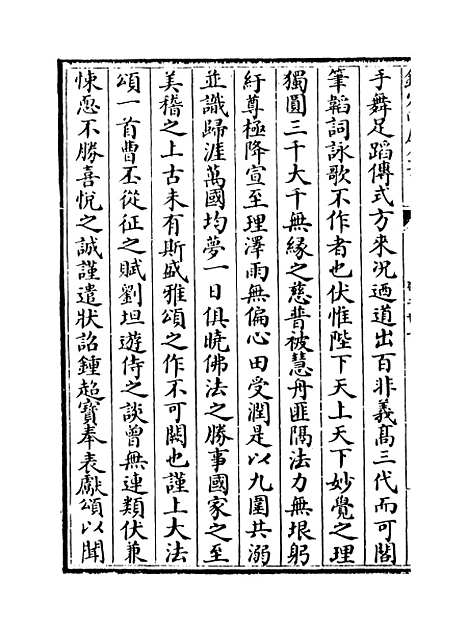 手舞足蹈傳式方來况迺道出百非義髙三代而可閣
筆韜詞詠歌不作者也伏惟陛下天上天下妙覺之理
獨圓三千大千無縁之慈普被慧舟匪隅法力無垠躬
紆尊極降宣至理澤雨無偏心田受潤是以九圍共溺
並識歸涯萬國均夢一日俱曉佛法之勝事國家之至
美稽之上古未有斯盛雅頌之作不可闕也謹上大法
頌一首曹丕從征之賦劉坦遊侍之談曾無連類伏兼
悚恧不勝喜悅之誠謹遣狀詔鍾超寳奉表獻頌以聞